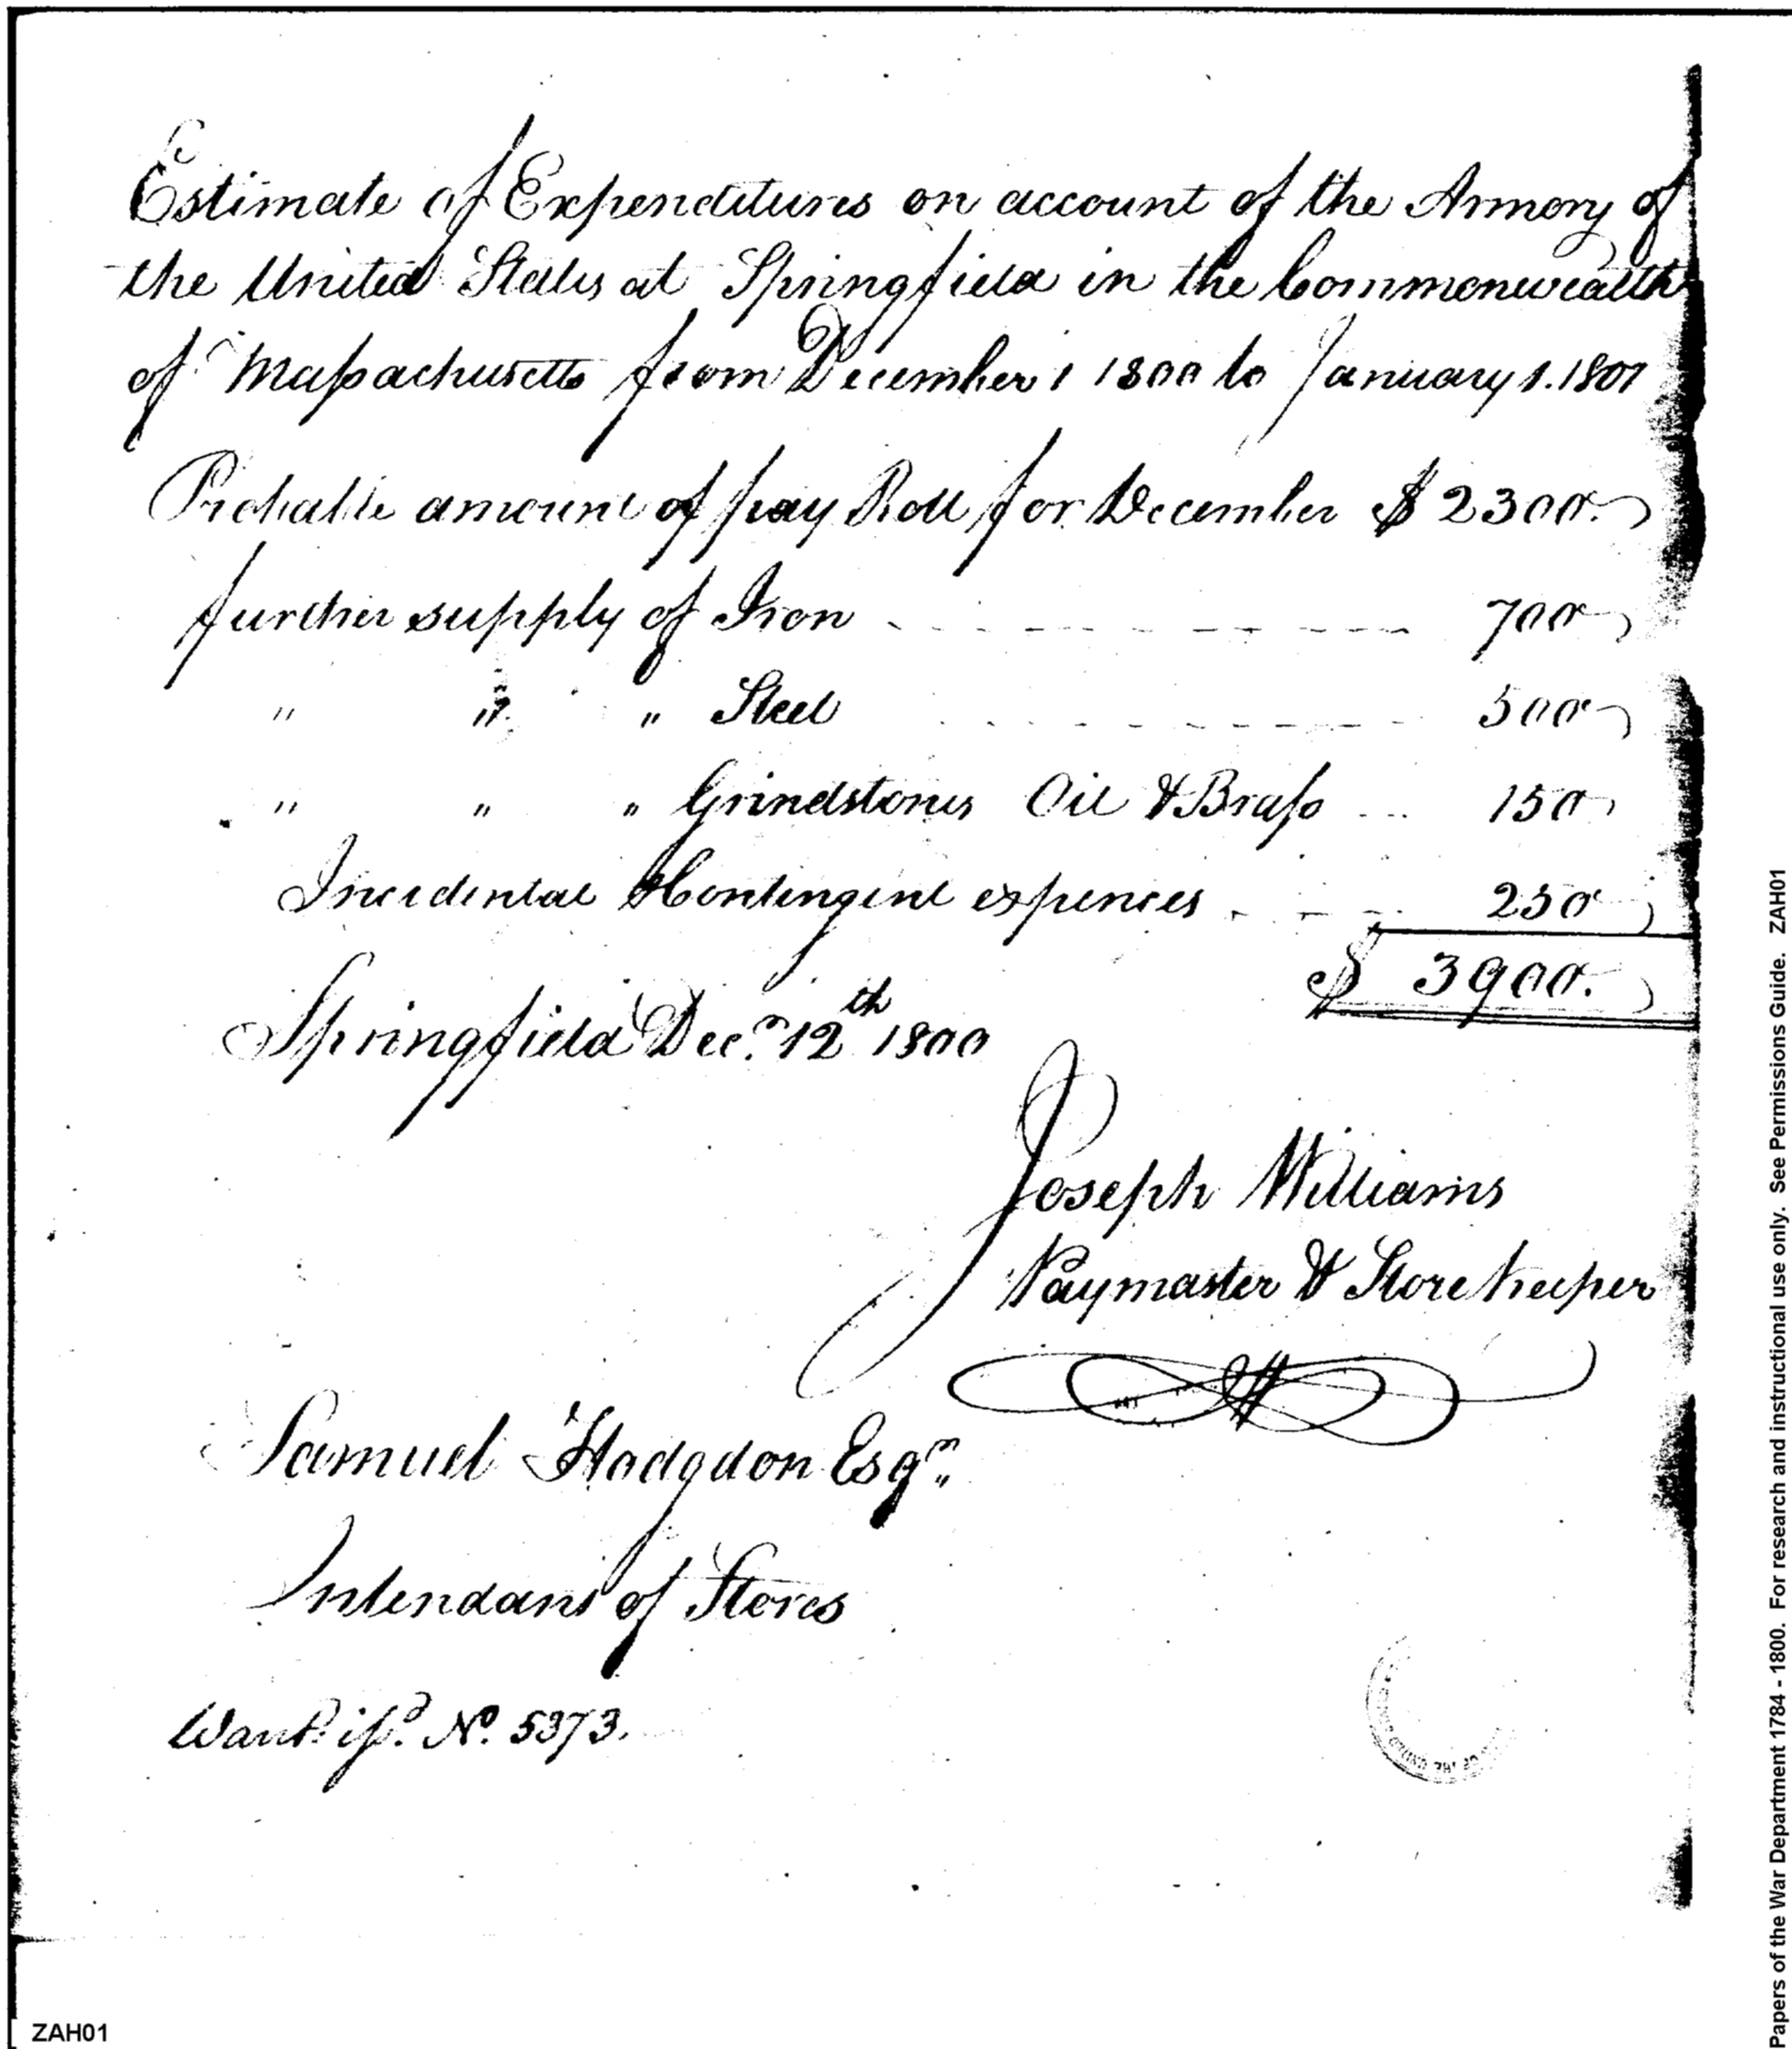 Estimate of Expenditures on account of the Armory of
the United States at Springfield in the Commonwealth
of Massachusetts from December 1 1800 to January 1. 1801
Probable amount of pay Roll for December $ 2300.
further supply of Iron - - - - - - - - - - 700
" " " Steel - - - - - - - - - - 500
" " " Grindstones Oil & Brass - - - 150
Incidental & Contingent expences - - - - 250
$ 3900.
Springfield Decr. 12th 1800
Joseph Williams
Paymaster & Store keeper
Samuel Hodgdon Esqr.
Intendant of Stores
Warrt. issd. No. 5373.
OF THE UNITED
ZAH01
Papers of the War Department 1784 - 1800. For research and instructional use only. See Permissions Guide. ZAH01